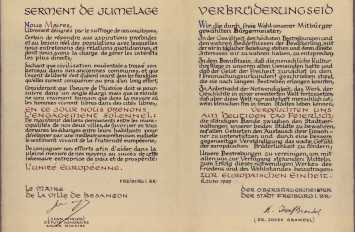 SERMENT DE JUMELAGE
Nous Maires,
Librement désignés par le suffrage de nos concitoyens,
Certains de répondre aux aspirations profondes
et aux besoins réels des populations avec lesquelles
nous entretenons des relations quotidiennes, et
dont nous gérons la chose publique au niveau le
plus direct,
Sachant que civilisation occidentale a trouvé son
berceau dans nos anciennes communes, et que
l'esprit de liberté s'est d'abord inscrit dans les franchises
qu'elles surent conquérir au prix d'un long effort,
Considérant que l'œuvre de l'histoire doit se pour-
suivre dans un monde élargi mais que ce monde
ne sera vraiment humain que dans la mesure où
les hommes vivront libres dans des cités libres,
EN CE JOUR NOUS PRENONS
L'ENGAGEMENT SOLENNEL:
De maintenir des liens permanents entre les mu-
nicipalités de nos deux villes, de favoriser en tous
domaines les échanges entre leurs habitants pour
développer par une meilleure compréhension mutuelle
le sentiment vivant de la Fraternité européenne;
De conjuguer nos efforts afin d'aider dans la
pleine mesure de nos moyens au succès de cette
nécessaire entreprise de paix et de prospérité:
L'UNITÉ EUROPÉENNE.
FREIBURG I. BR.
LE MAIRE
DE LA VILLE DE BESANÇON
(JEAN MINJOZ)
DÉPUTÉ HONORAIRE
ANCIEN MINISTRE
VERBRÜDERUNGSEID
Wir, die durch freie Wahl unserer Mitbürger
gewählten Bürgermeister,
In der Gewißheit, den höchsten Bestrebungen und
den wahren Bedürfnissen der Bevölkerung, mit der
wir in täglicher Beziehung stehen und deren
Interessen wir unmittelbar wahren, zu entsprechen,
In dem Bewußtsein, daß die abendländische Kultur
ihre Wiege in unseren alten Gemeinden hatte und
daß der Geist der Freiheit zunächst in den
Freiheitsurkunden geschrieben steht,
die sie nach langen Bemühungen errangen,
In Anbetracht der Notwendigkeit, das Werk der
Geschichte in einer erweiterten Welt fortzusetzen,
daß aber diese Welt nur wahrhaft menschlich ist,
wenn Menschen frei in freien Städten leben können,
VERPFLICHTEN UNS
AM HEUTIGEN TAG FEIERLICH:
Ständige Bande zwischen den Stadtverwaltungen
unserer beiden Städte zu bewahren, auf
allen Gebieten den Austausch ihrer Bewoh-
ner zu unterstützen und durch eine bessere
gegenseitige Verständigung das wache Gefühl
der europäischen Brüderlichkeit zu fördern;
Unsere Bestrebungen zu vereinen, um mit
allen uns zur Verfügung stehenden Mitteln
zum Erfolg dieses notwendigen Werkes des
Friedens und des Wohlstandes beizutragen:
ZUR EUROPÄISCHEN EINHEIT.
DER OBERBÜRGERMEISTER
DER STADT FREIBURG I. BR.
(DR. JOSEF BRANDEL)